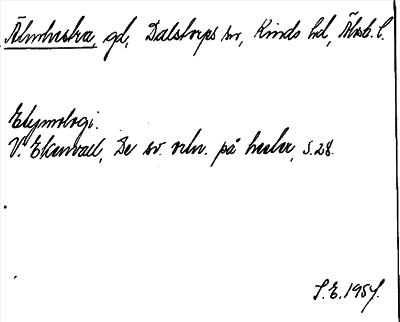 Älmhestra, gd, Dalstorps sn, Kinds hd, Älvsb. l.
Etymologi.
V. Ekenvall, De sv. ortn. på hester, s. 28.
S.E. 1957.